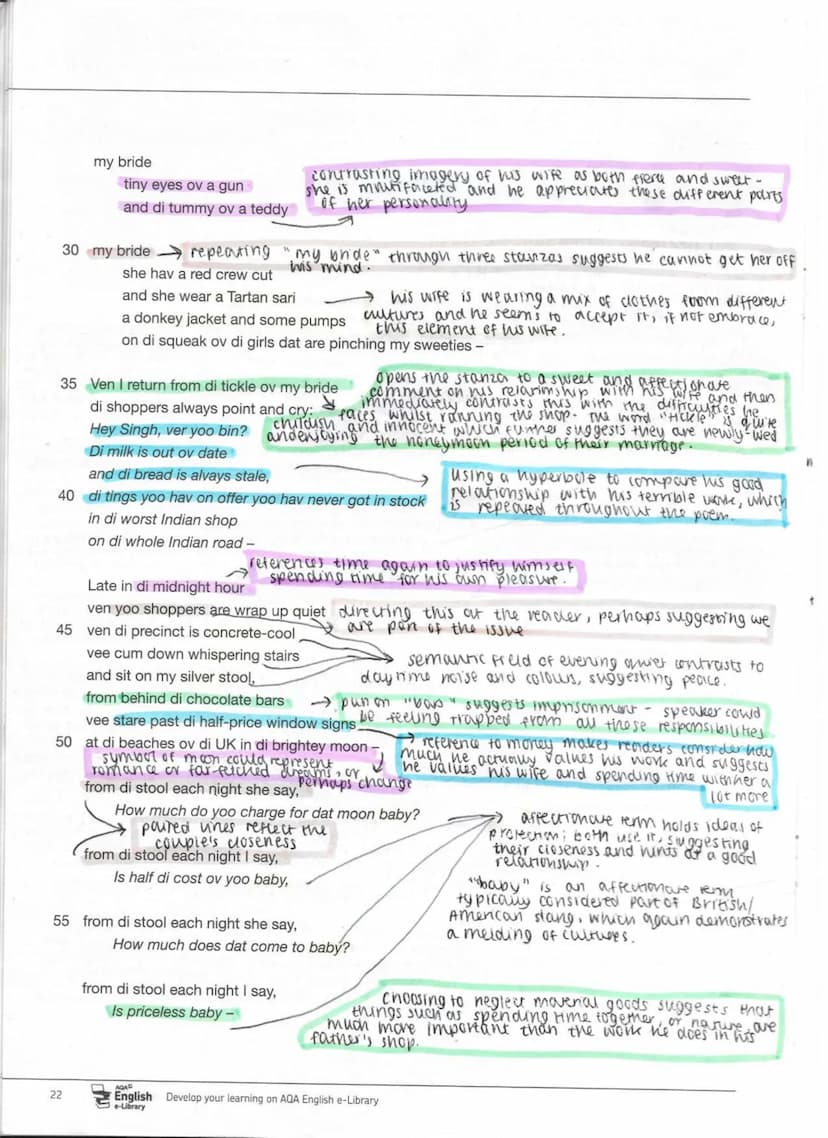 my bride
tiny eyes ov a gun
and di tummy ov a teddy
contrasting imagery of his wife as both fierce and sweet -
she is multifaceted and he appreciates these different parts
of her personality
30 my bride
repeating "my bride" through three stanzas suggests he cannot get her off
his mind.
she hav a red crew cut
and she wear a Tartan sari
a donkey jacket and some pumps
on di squeak ov di girls dat are pinching my sweeties –
his wife is wearing a mix of clothes from different
cultures and he seems to accept it, if not embrace,
this element of his wife.
35 Ven I return from di tickle ov my bride
di shoppers always point and cry:
Hey Singh, ver yoo bin?
Di milk is out ov date
and di bread is alvays stale,
40 di tings yoo hav on offer yoo hav never got in stock
in di worst Indian shop
on di whole Indian road –
opens the stanza to a sweet and affectionate
comment on his relationship with his wife and then
immediately contrasts this with the difficulties he
faces whilst running the shop. The word "tickle" is quite
childish and innocent which further suggests they are newly-wed
and enjoying the honeymoon period of their marriage.
using a hyperbole to compare his good
relationship with his terrible work, which
is repeated throughout the poem.
references time again to justify himself
spending time for his own pleasure.
Late in di midnight hour
ven yoo shoppers are wrap up quiet
45 ven di precinct is concrete-cool
vee cum down whispering stairs
and sit on my silver stool,
from behind di chocolate bars
vee stare past di half-price window signs
50 at di beaches ov di UK in di brightey moon –
directing this at the reader, perhaps suggesting we
are part of the issue
semantic field of evening quiet contrasts to
daytime noise and colours, suggesting peace.
pun on "bars" suggests imprisonment - speaker could
be feeling trapped from all these responsibilities
reference to money makes readers consider how
much he actually values his work and suggests
he values his wife and spending time with her a
lot more
symbol of moon could represent
romance or far-fetched dreams, or
perhaps change
from di stool each night she say,
How much do yoo charge for dat moon baby?
paired lines reflect the
couple's closeness
from di stool each night I say,
Is half di cost ov yoo baby,
affectionate term holds ideas of
protection; both use it, suggesting
their closeness and hints at a good
relationship.
"baby" is an affectionate term
typically considered part of British/
American slang, which again demonstrates
a melding of cultures.
55 from di stool each night she say,
How much does dat come to baby?
from di stool each night I say,
Is priceless baby –
Choosing to neglect material goods suggests that
things such as spending time together, or nature, are
much more important than the work he does in his
father's shop.
22 AQA English e-Library Develop your learning on AQA English e-Library